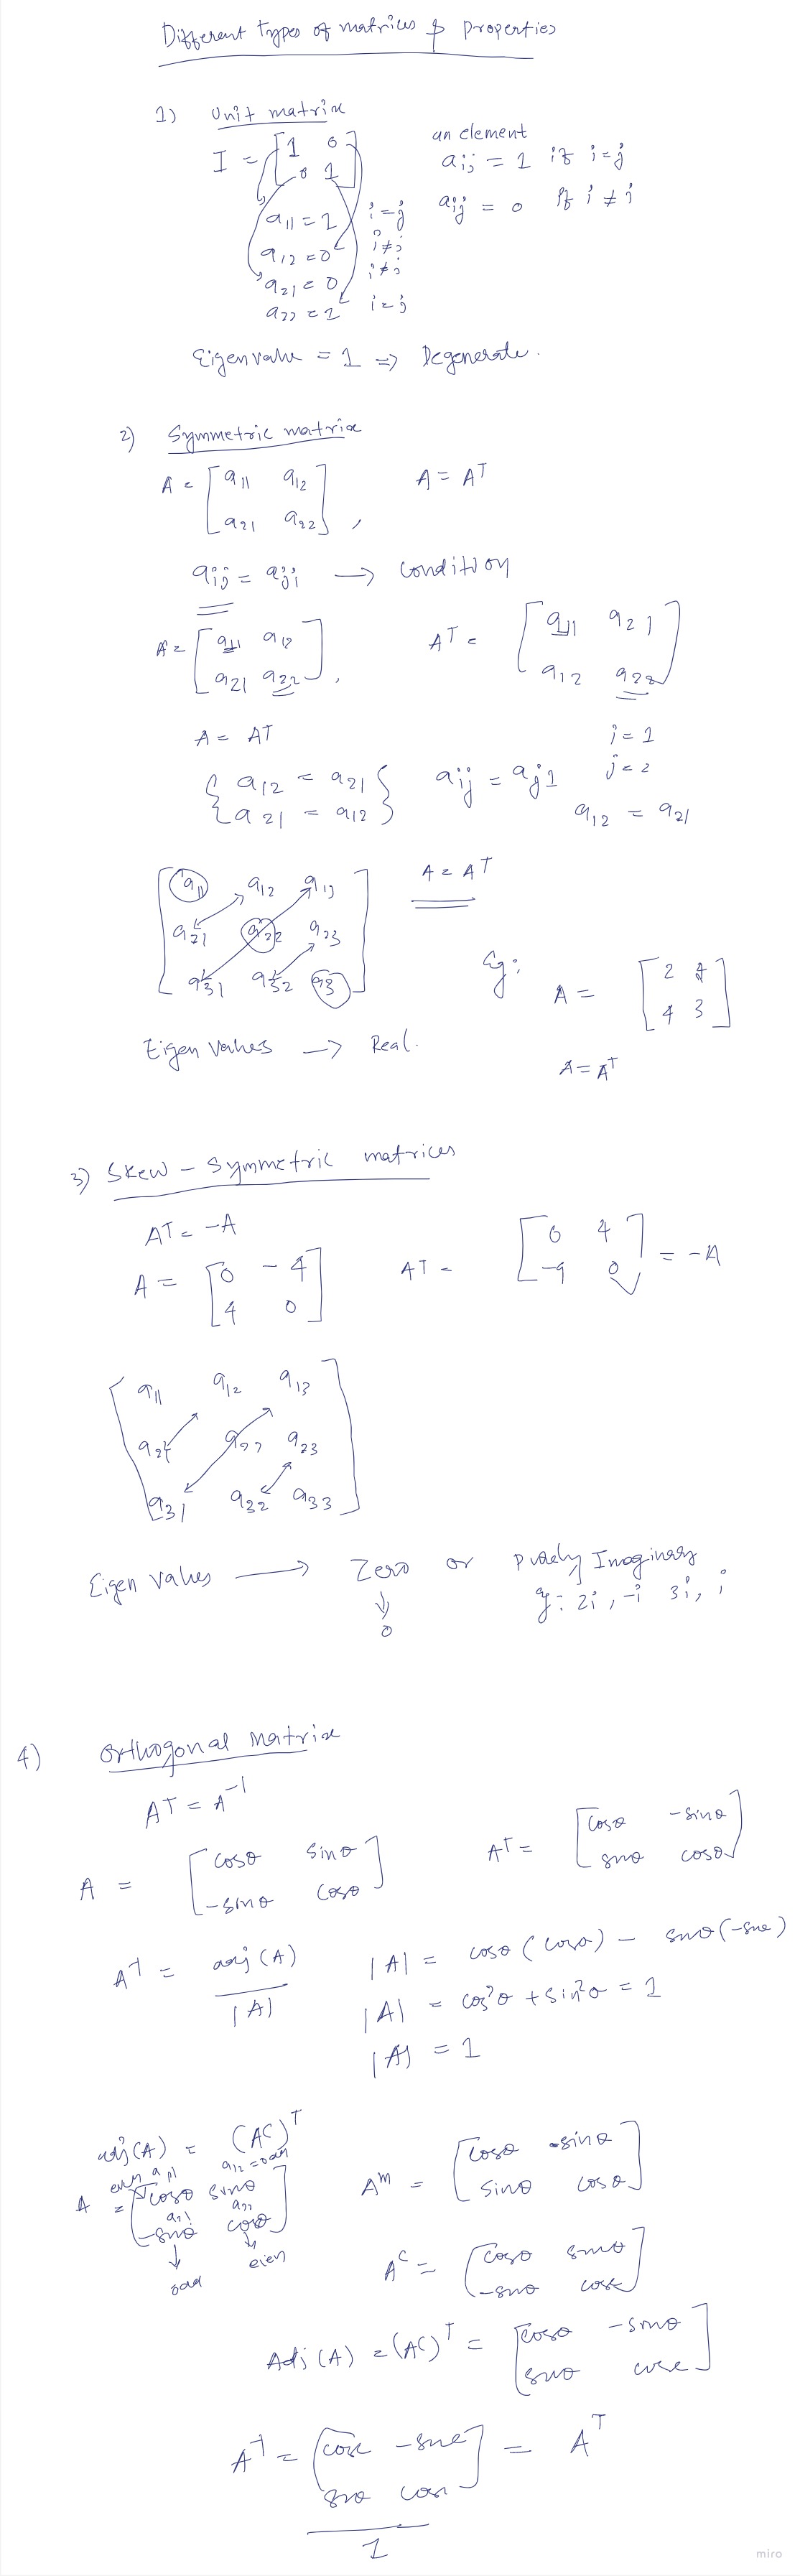 Different types of matrices & properties
1) Unit matrix
I = [1 0
0 1]
an element
aij = 1 if i=j
aij = 0 if i ≠ j
a11 = 1 i=j
a12 = 0 i≠j
a21 = 0 i≠j
a22 = 1 i=j
Eigenvalue = 1 => Degenerate.
2) Symmetric matrix
A = [a11 a12
a21 a22],
A = A^T
aij = aji → condition
A = [a11 a12
a21 a22],
A^T = [a11 a21
a12 a22]
A = A^T
i = 1
j = 2
{a12 = a21
a21 = a12}
aij = aji
a12 = a21
[a11 a12 a13
a21 a22 a23
a31 a32 a33]
A = A^T
Eg:
A = [2 4
4 3]
Eigen values → Real.
A = A^T
3) Skew - symmetric matrices
A^T = -A
A = [0 -4
4 0]
A^T = [0 4
-4 0] = -A
[a11 a12 a13
a21 a22 a23
a31 a32 a33]
Eigen values → Zero or purely Imaginary
0
eg: 2i, -i 3i, i
4) Orthogonal matrix
A^T = A^-1
A = [cosθ sinθ
-sinθ cosθ]
A^T = [cosθ -sinθ
sinθ cosθ]
A^-1 = adj(A)
|A|
|A| = cosθ(cosθ) - sinθ(-sinθ)
|A| = cos²θ + sin²θ = 1
|A| = 1
adj(A) = (A^c)^T
even a11 a12 = odd
A = [cosθ sinθ
a21 a22
-sinθ cosθ]
odd even
A^m = [cosθ -sinθ
sinθ cosθ]
A^c = [cosθ sinθ
-sinθ cosθ]
Adj(A) = (A^c)^T = [cosθ -sinθ
sinθ cosθ]
A^-1 = [cosθ -sinθ
sinθ cosθ] = A^T
1
miro